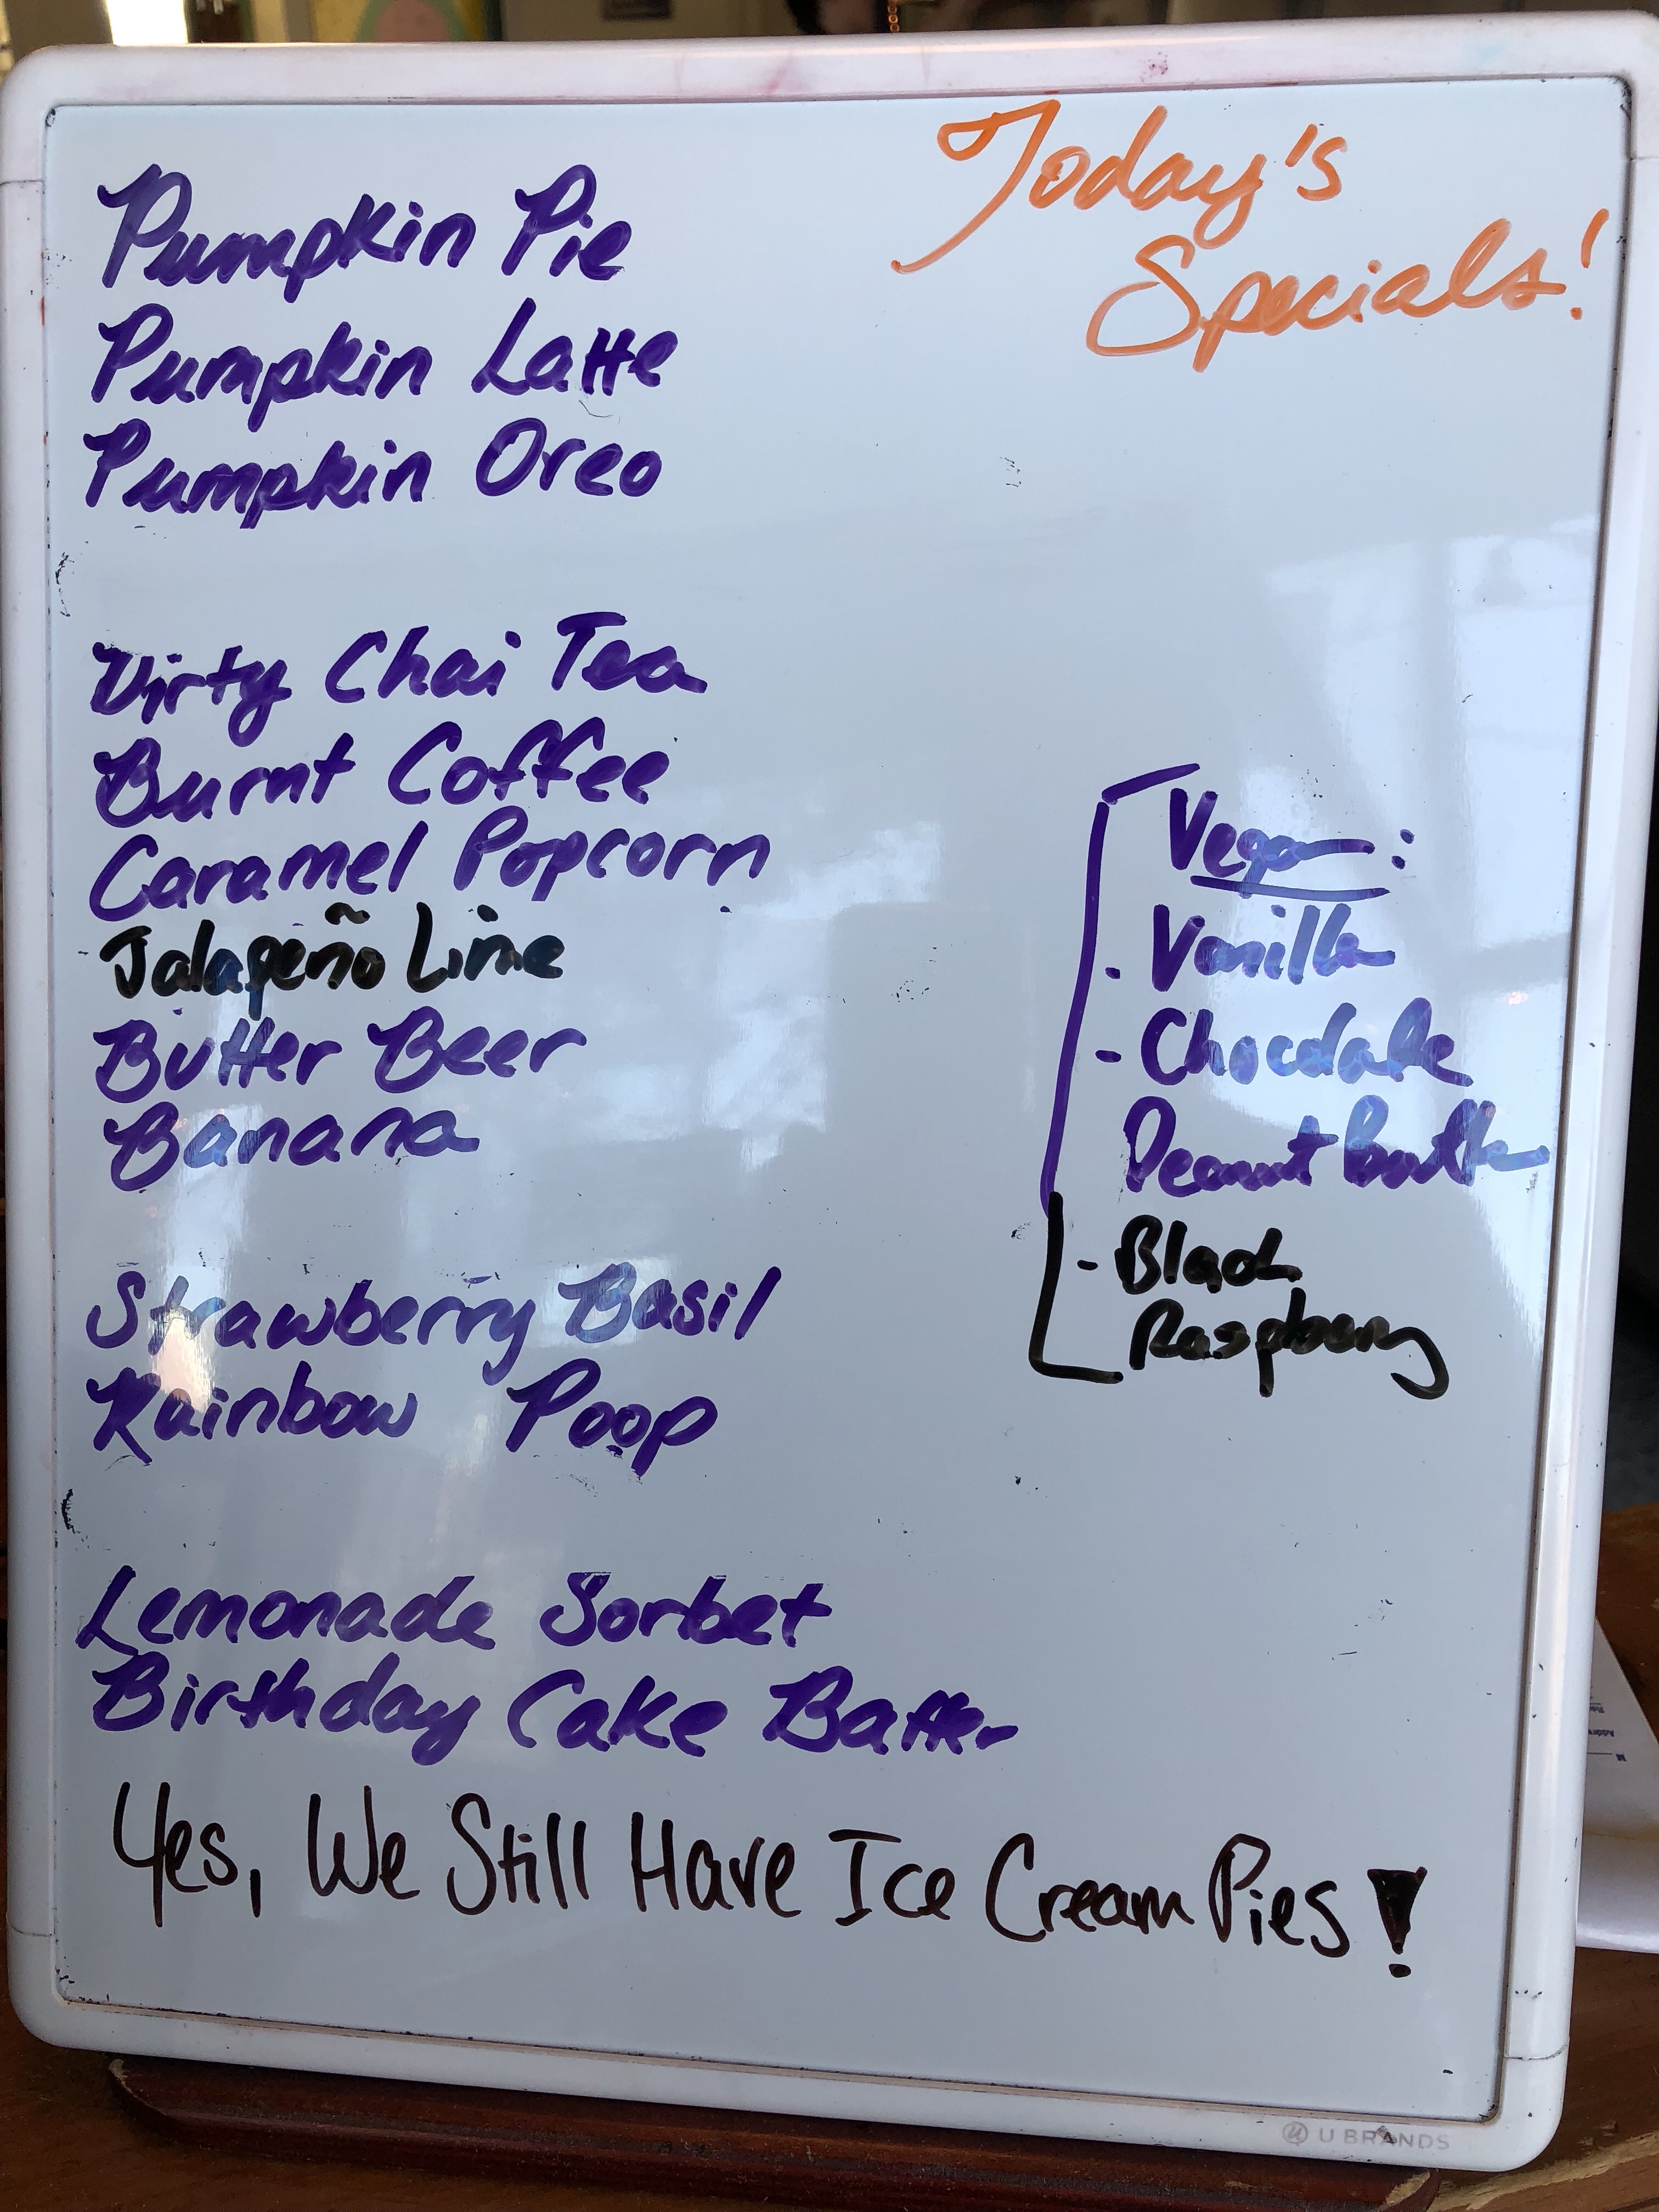 Today's
Specials!
Pumpkin Pie
Pumpkin Latte
Pumpkin Oreo
Dirty Chai Tea
Burnt Coffee
Caramel Popcorn
Jalapeño Lime
Butter Beer
Banana
Strawberry Basil
Rainbow Poop
Lemonade Sorbet
Birthday Cake Batter
Vegan:
- Vanilla
- Chocolate
Peanut butter
- Black
Raspberry
Yes, We Still Have Ice Cream Pies!
U BRANDS